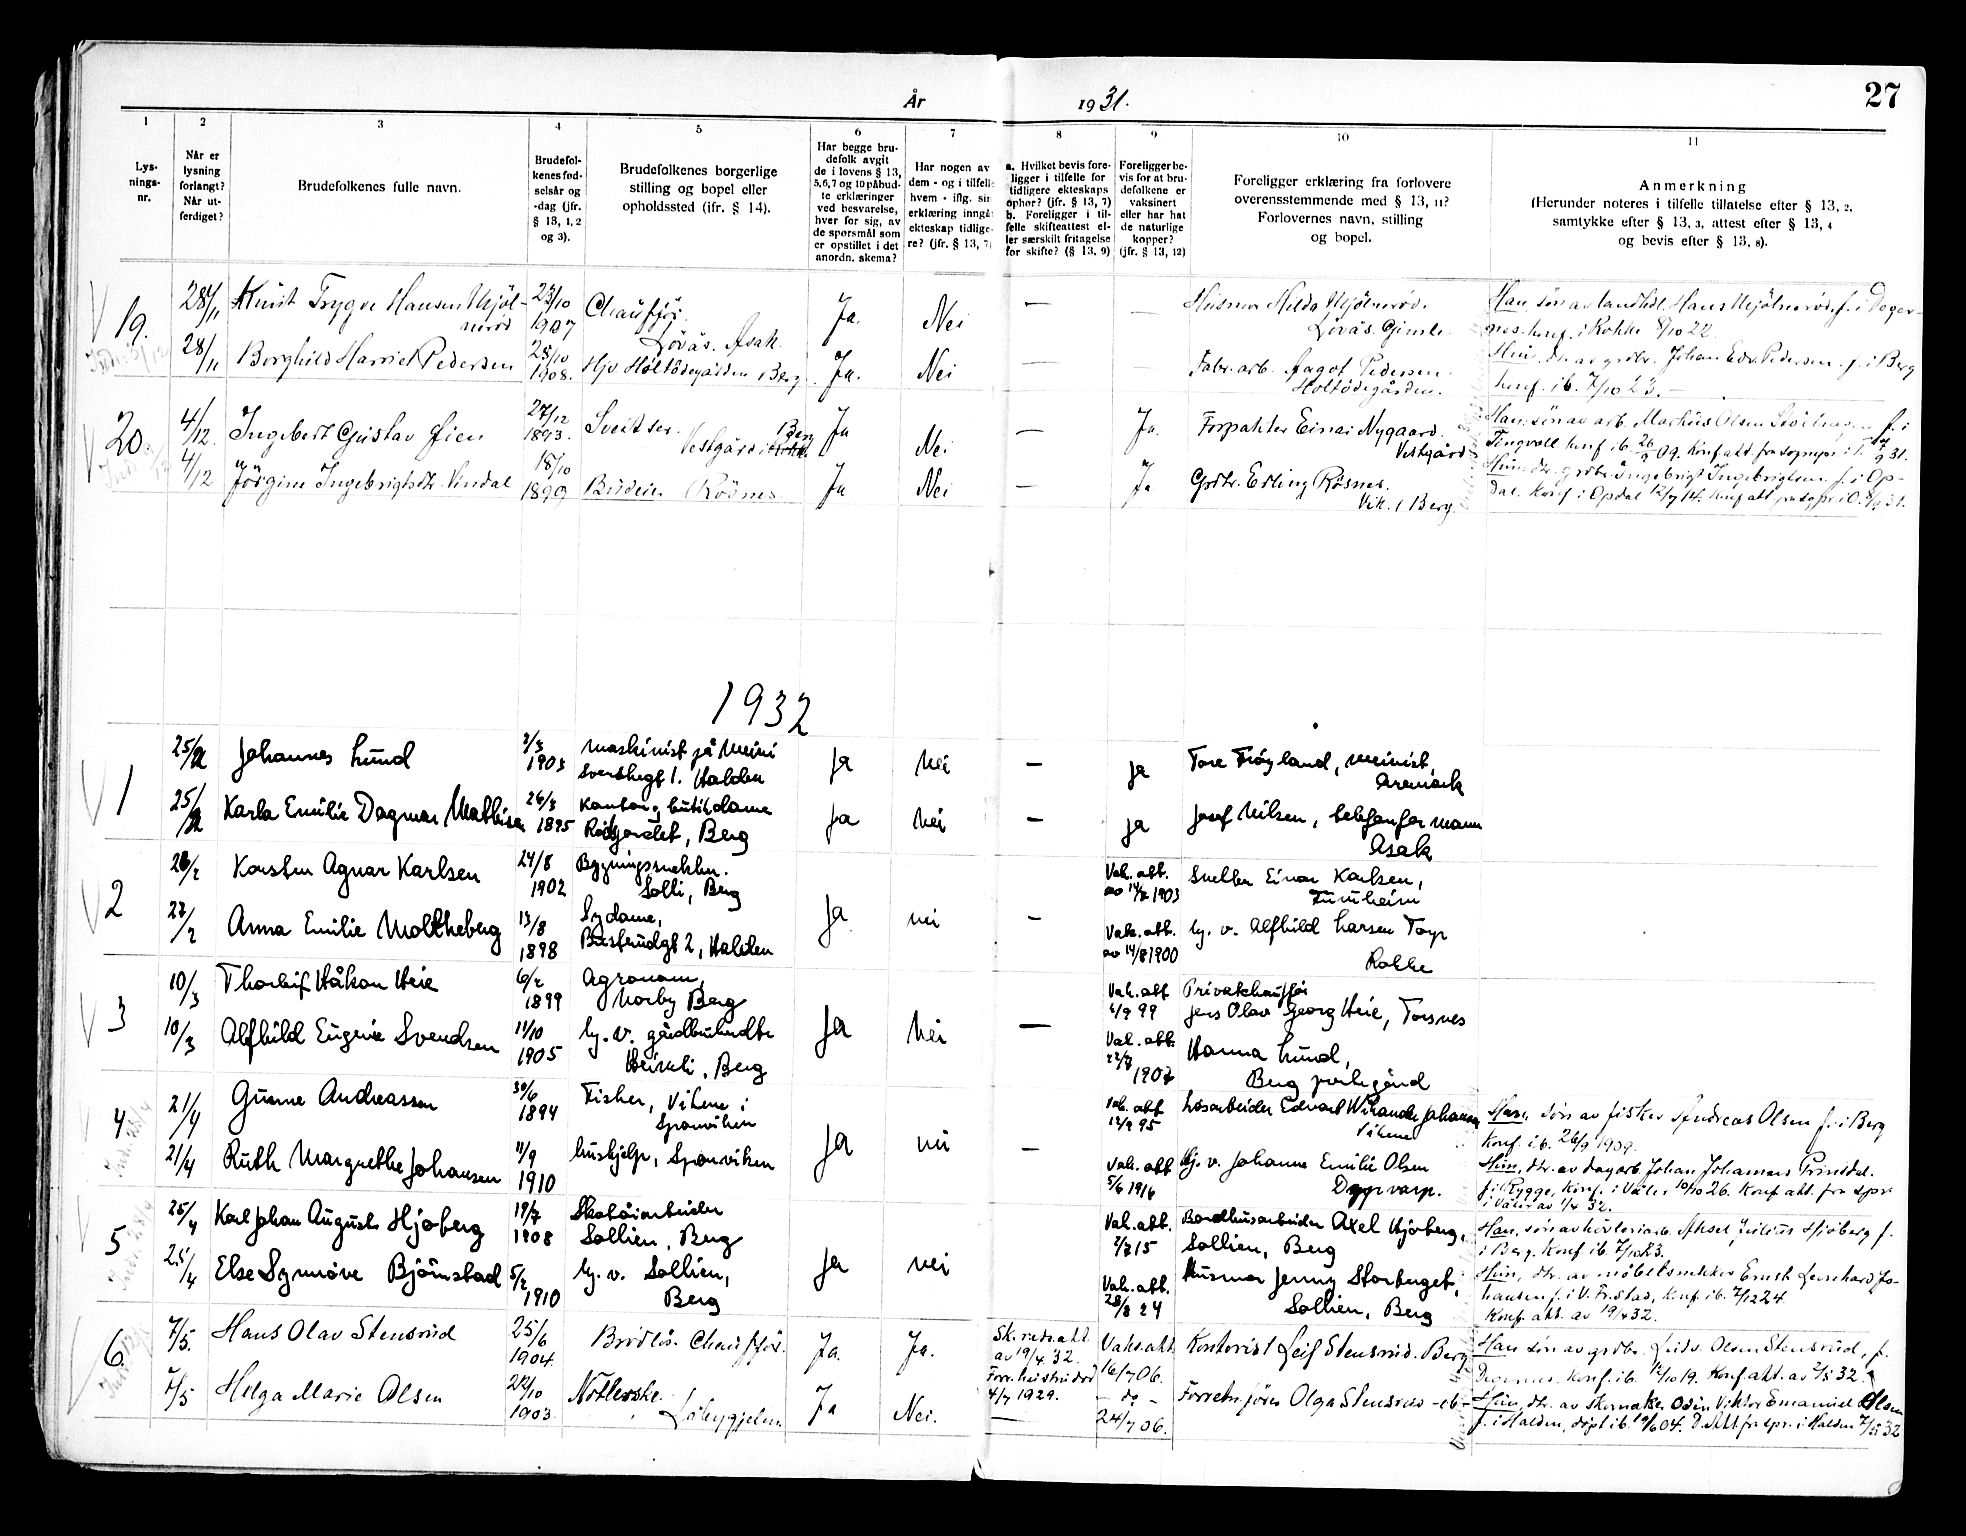 27
År 1931.
1
Lys-
nings-
nr.
2
Når er
lysning
forlangt?
Når ut-
ferdiget?
3
Brudefolkenes fulle navn.
4
Brudefol-
kenes fød-
selsår og
-dag (jfr.
§ 13, 1, 2
og 3).
5
Brudefolkenes borgerlige
stilling og bopel eller
opholdssted (ifr. § 14).
6
Har begge bru-
defolk avgit
de i lovens § 13,
5, 6, 7 og 10 påbud-
te erklæringer
ved besvarelse,
hver for sig, av
de spørsmål som
er opstillet i det
anordn. skema?
7
Har nogen av
dem - og i tilfelle
hvem - iflg. sin
erklæring inngå
ekteskap tidlige-
re? (jfr. § 13, 7)
8
a. Hvilket bevis fore-
ligger i tilfelle for
tidligere ekteskaps
ophor? (jfr. § 13, 7)
b. Foreligger i til-
felle skifteattest el-
ler særskilt fritagelse
for skifte? (§ 13, 9)
9
Foreligger be-
vis for at bru-
defolkene er
vaksinert
eller har hat
de naturlige
kopper?
(jfr. § 13, 12)
10
Foreligger erklæring fra forlovere
overensstemmende med § 13, 11?
Forlovernes navn, stilling
og bopel.
11
Anmerkning
(Herunder noteres i tilfelle tillatelse efter § 13, 2,
samtykke efter § 13, 3, attest efter § 13, 4
og bevis efter § 13, 8).
19.
28/11 Knut Trygve Hansen Mjöl-
neröd
23/10
1907
Chaufför.
Lövås. Asak
Ja. Nei —
Husmor Hilda Mjölneröd.
Lövås. Gimle
Han, sön av landhdl. Hans Mjölneröd, f. i Deger-
nes. konf. i Rokke 8/10 22.
28/11 Borghild Harriet Pedersen
25/10
1908.
Hjv Holtödegården Berg.
Ja. Nei —
Fabr. arb. Aagot Pedersen.
Holtödegården.
Hun, dr. av grdbr. Johan Edv. Pedersen. f. i Berg
konf. ib. 7/10 23.
20.
4/12. Ingebert Gustav Øien
27/12
1893.
Sveitser. Berg
Vestgård i
Ja Nei — Ja.
Forpakter Einar Nygaard.
Vestgård
Han, sön av arb. Markus Olsen f. i
Tingvoll konf ib. 09. Konf att. fra sognepr. i T. 31.
4/12 Jörgine Ingebrigtsdtr. Vindal
18/10
1899
Budeie Rösnes
Ja Nei — Ja
Grdbr. Erling Rösnes.
Vik. i Berg.
Hun dr. grdbr Ingebrigt Ingebrigtsen. f. i Op-
dal. Konf i Opdal 12/7 14. Konf att fra sogpr i O. 31.
1932
1
25/2 Johannes Lund
2/3
1903
maskinist på meieri
Svenskegt 1. Halden
Ja Nei — Ja
Tore Frøyland, meierist,
Aremark
25/2 Karla Emilie Dagmar Mathisen
26/3
1895
Kontor og butikdame
Berg
Ja Nei — Ja
Josef Nilsen,
Asak
2
26/2 Karsten Agnar Karlsen
24/8
1902
Bygningssnekker.
Solli, Berg
Ja nei —
Vak. att.
av 1903
Snekker Einar Karlsen,
27/2 Anna Emilie Moltkeberg
13/8
1898
Sydame,
2, Halden
Vak. att.
av 14/8 1900
hj. v. Alfhild Larsen Torp
Rokke
3
10/3 Thorleif Håkon Heie
6/2
1899
Agronom,
Norby Berg
Ja Nei —
Vak. att
99
Privatchauffør
Jens Olav Georg Heie, Torsnes
10/3 Alfhild Eugenie Svendsen
11/10
1905
hj. v. gårdbruk
Berg
Vak. att.
1907
Hanna Lund,
Berg prestegård
4
21/4 Gunne Andreassen
30/6
1894
Fisker, Vikene i
Sponviken
Ja nei —
Vak. att
95
Løsarbeider Edvard Johansen
Vikene
Han, sön av fisker Andreas Olsen f. i Berg
Konf. ib. 26/9 1909.
21/4 Ruth Margrethe Johansen
11/9
1910
hushjelp, Sponviken
Vak. att
5/6 1916
hj. v. Johanne Emilie Olsen
Dypvarp.
Hun, dtr. av dagarb. Johan Johannes Prinsdal.
f. i Rygge, Konf. i Våler 10/10 26. Konf att. fra spr
i Våler av 1/4 32.
5
25/4 Karl Johan August Hjøberg
19/7
1908
Skotøiarbeider
Sollien, Berg
Ja nei
Vak. att.
2/7 15
Bordhusarbeider Axel Hjøberg,
Sollien, Berg
Han, sön av høvleriarb. Aksel Julius Hjöberg f.
i Berg. Konf ib. 7/10 23.
25/4 Else Synnöve Björnstad
5/2
1910
hj. v. Sollien,
Berg
Vak. att.
28/8 24
Husmor Jenny Storhaget,
Sollien, Berg
Hun, dtr. av möbelsnekker Ernst Leonhard Jo-
hansen f. i V. Fr.stad, Konf. ib. 7/12 24.
Konf. att. av 19/4 32.
6.
7/5. Hans Olav Stensrud
25/6
1904.
Brödløs. Chaufför.
Ja. Ja.
Sk. att.
av 19/4 32.
Forr. hustru død
4/7 1929.
Vaks. att
16/7 06.
Kontorist Leif Stensrud. Berg
Han sön av grdbr. Ludv. Olsen Stensrud, f.
Konf. ib. 12/10 19. Konf att. av 2/5 32.
7/5 Helga Marie Olsen
22/10
1903.
Ja Nei. —
— do —
24/7 06.
Olga Stensrud - ib -
Hun, dtr. av skomaker Odin Viktor Emanuel Olsen
f. i Halden, döpt ib. 04. D. Att. fra spr. i Halden 7/5 32